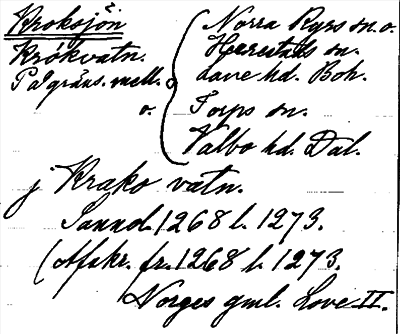 Kroksjön
Krókvatn.
På gräns. mell.
Norra Ryrs sn. o.
Herestads sn.
Lane hd. Boh.
o.
Torps sn.
Valbo hd. Dal.
j Krako vatn.
Sannol. 1268 l. 1273.
(Afskr. fr. 1268 l. 1273.
Norges gml. Love II.